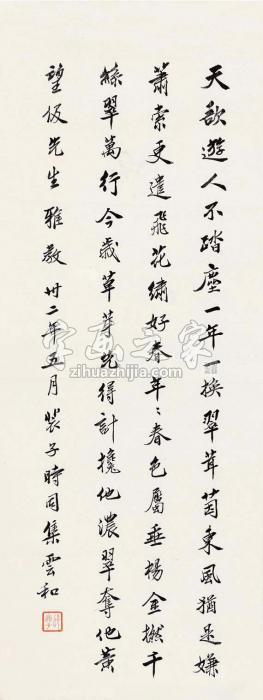 天欲遊人不踏塵一年一換翠茸茵東風猶是嫌
蕭索更遣飛花繡好春年〻春色屬垂楊金撚千
絲翠萬行今歲草芽先得計攙他濃翠奪他黃
望伋先生雅教 卅二年五月裴子時同集雲和
字画之家
zihuazhijia.com